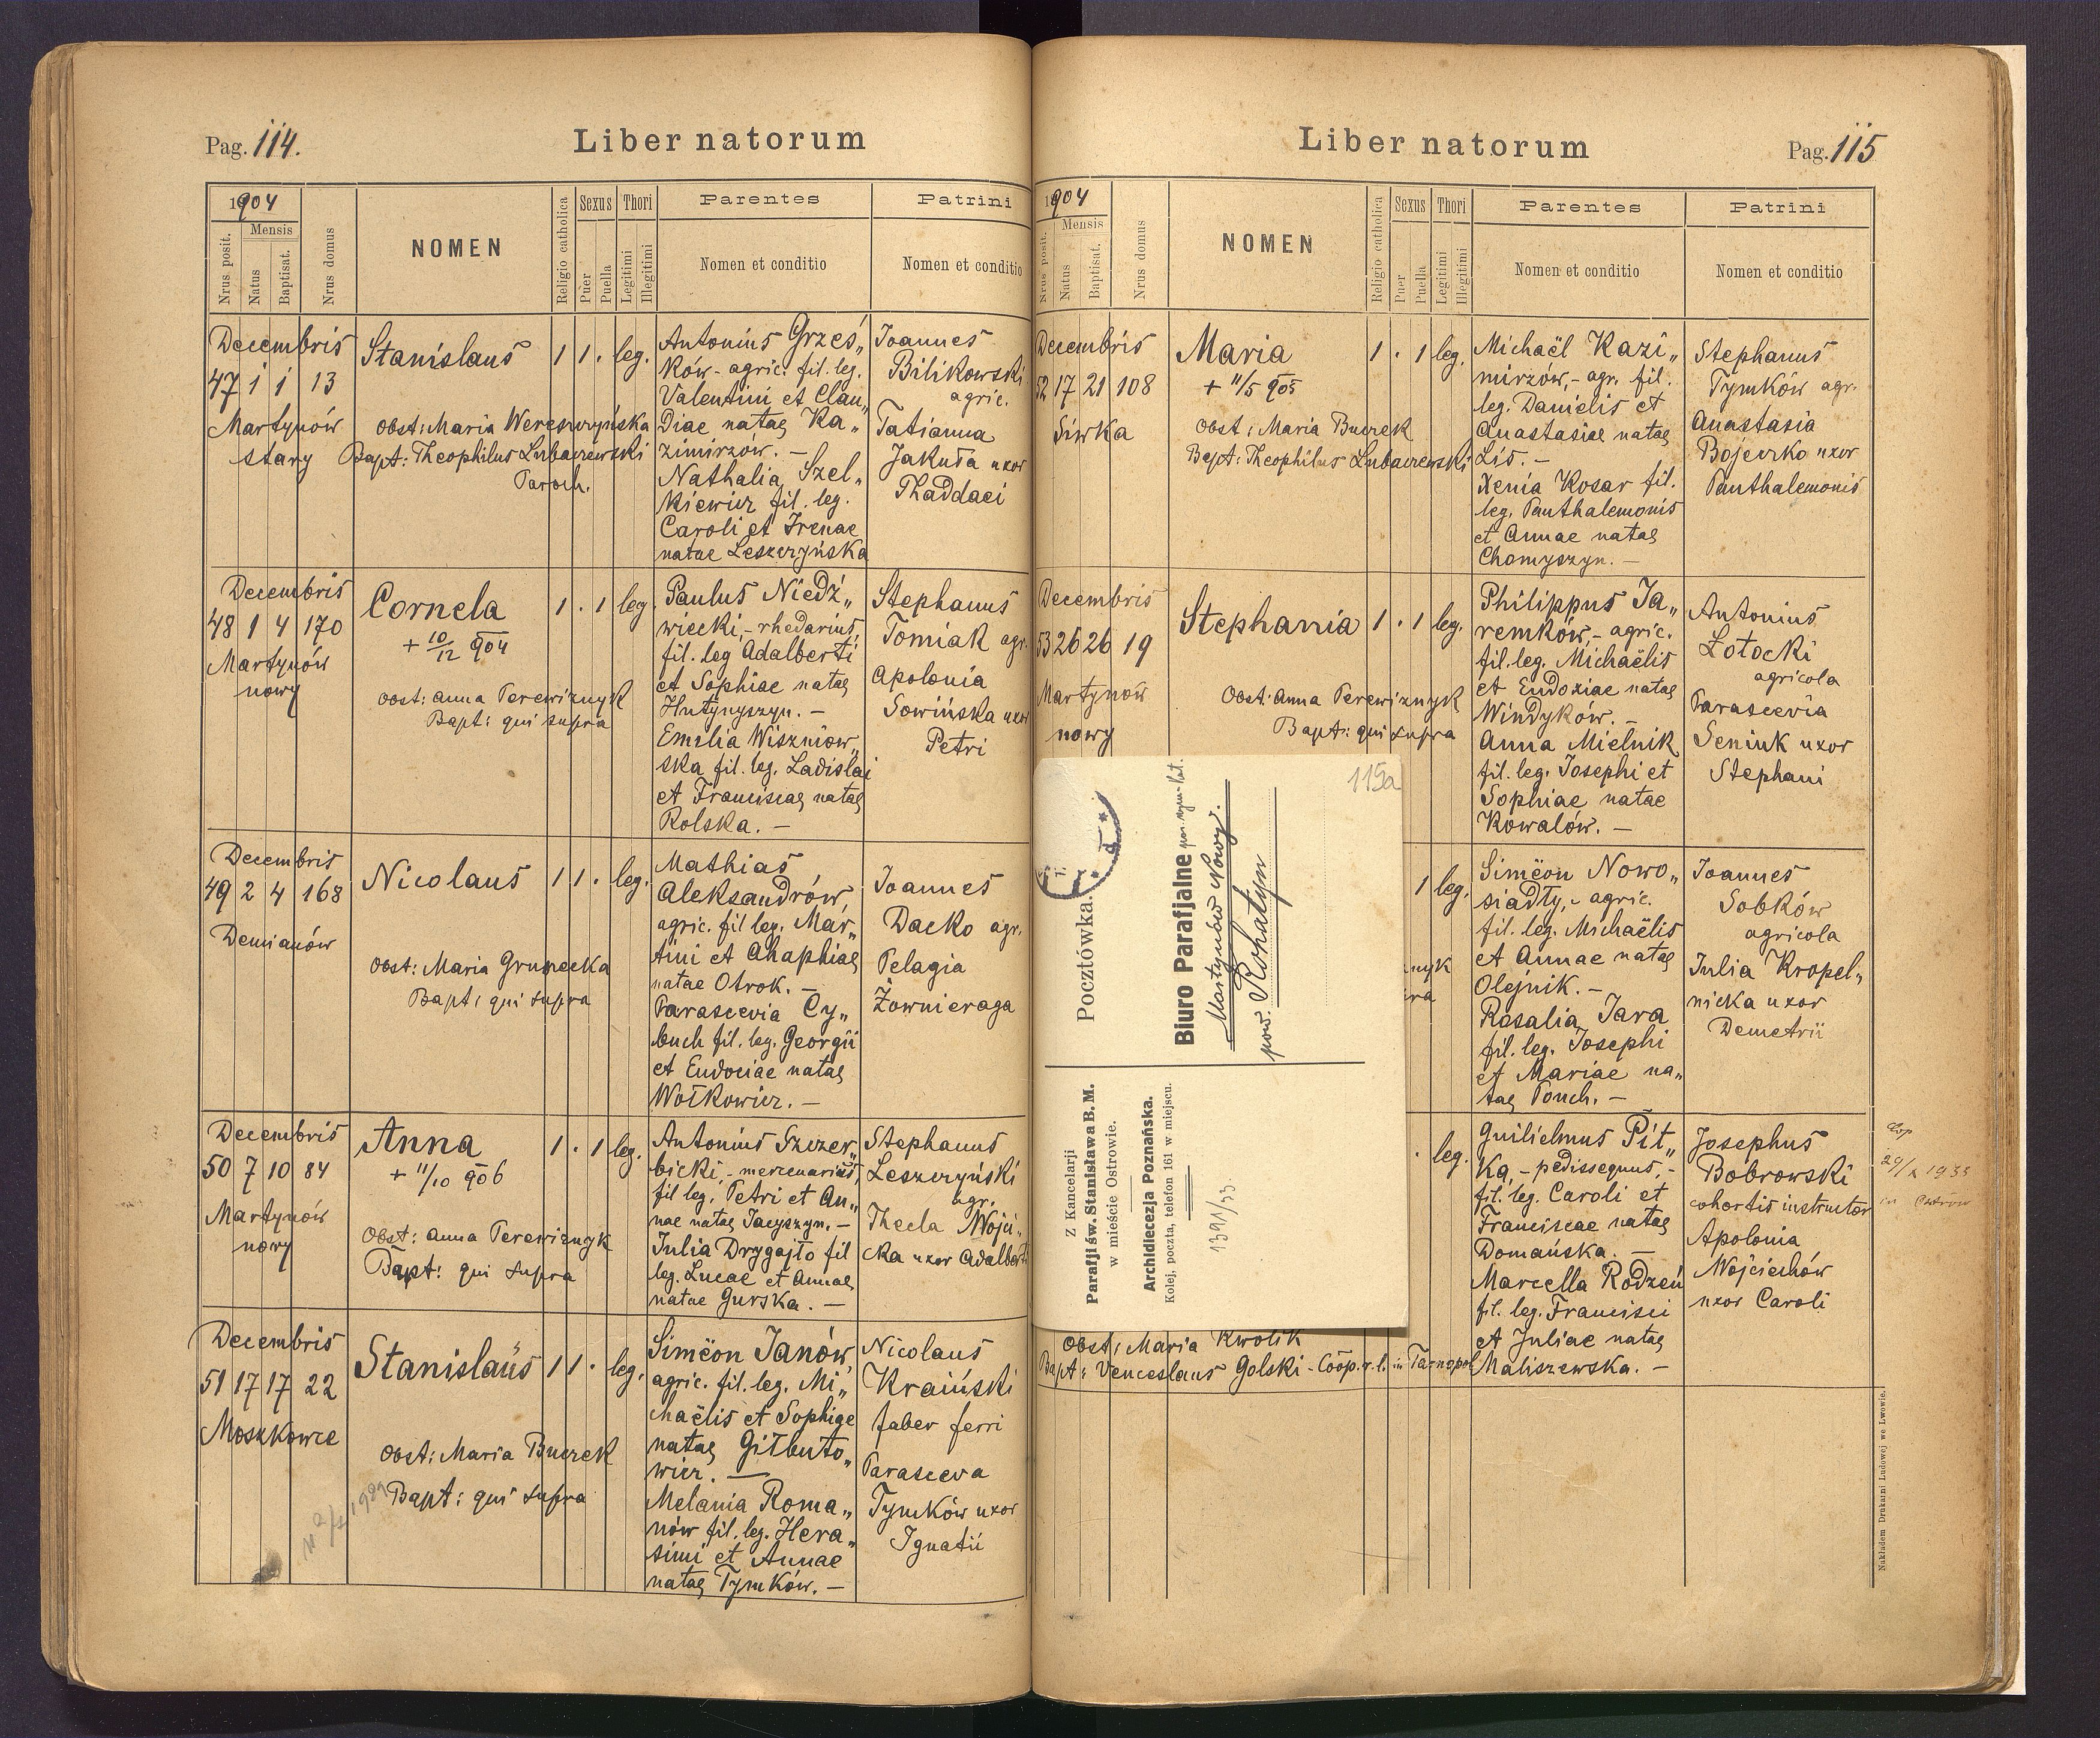 Pag. 114.
Liber natorum
1904
Mensis
Nrus posit.
Natus
Baptisat.
Nrus domus
NOMEN
Religio catholica
Sexus
Puer
Puella
Thori
Legitimi
Illegitimi
Parentes
Nomen et conditio
Patrini
Nomen et conditio
Decembris
47 1 1 13
Martynów
stary
Stanislaus
1 1 . leg.
Obst: Maria Wereszczyńska
Bapt: Theophilus Lubaczewski
Paroch.
Antonius Grześ„
ków - agric. fil. leg.
Valentini et Clau„
diae natae Ka„
zimirzów. -
Nathalia Szel„
kiewicz fil. leg.
Caroli et Irenae
natae Leszczyńska
Joannes
Bilikowski
agric.
Tatianna
Jakuta uxor
Thaddaei
Decembris
48 1 4 170
Martynów
nowy
Cornela
+ 10/12 904
1 . 1 leg.
Obst: Anna Perewiznyk
Bapt: qui supra
Paulus Niedź„
wiecki, - rhedarius,
fil. leg Adalberti
et Sophiae natae
Hutynyszyn. -
Emilia Wiszniow„
ska fil. leg. Ladislai
et Franciscae natae
Rolska. -
Stephanus
Tomiak agr.
Apolonia
Sowińska uxor
Petri
Decembris
49 2 4 168
Demianów
Nicolaus
1 1 . leg.
Obst: Maria Grunecka
Bapt: qui supra
Mathias
Aleksandrów,
agric. fil leg. Mar„
tini et Ahaphiae
natae Otrok. -
Parascevia Cy„
buch fil. leg. Georgii
et Eudociae natae
Wołkowicz. -
Joannes
Dacko agr.
Pelagia
Żownieraga
Decembris
50 7 10 84
Martynów
nowy
Anna
+ 11/10 906
1 . 1 leg.
Obst: Anna Perewiznyk
Bapt: qui supra
Antonius Szczer„
bicki, - mercenarius,
fil leg. Petri et An„
nae natae Jacyszyn. -
Julia Drygajło fil
leg. Lucae et Annae
natae Gurska. -
Stephanus
Leszczyński
agr.
Thecla Wójci„
cka uxor Adalberti
Decembris
51 17 17 22
Moszkowce
Stanislaus
1 1 . leg.
Obst: Maria Buczek
Bapt: qui supra
Simëon Janów,
agric. fil. leg. Mi„
chaëlis et Sophiae
natae Giłbuto„
wicz. -
Melania Roma„
nów fil. leg. Hera„
simi et Annae
natae Tymków. -
Nicolaus
Kraiński
faber ferri
Parasceva
Tymków uxor
Ignatii
Liber natorum
Pag. 115
1904
Mensis
Nrus posit.
Natus
Baptisat.
Nrus domus
NOMEN
Religio catholica
Sexus
Puer
Puella
Thori
Legitimi
Illegitimi
Parentes
Nomen et conditio
Patrini
Nomen et conditio
Decembris
52 17 21 108
Siwka
Maria
+ 11/5 905
1 . 1 leg.
Obst: Maria Buczek
Bapt: Theophilus Lubaczewski
Michaël Kazi„
mirzów, - agr. fil.
leg. Danielis et
Anastasiae natae
Lis. -
Xenia Kosar fil.
leg. Panthalemonis
et Annae natae
Chomyszyn. -
Stephanus
Tymków agr.
Anastasia
Bojeczko uxor
Panthalemonis
Decembris
53 26 26 19
Martynów
nowy
Stephania
1 . 1 leg.
Obst: Anna Perewiznyk
Bapt: qui supra
Philippus Ja„
remków, - agric.
fil. leg. Michaëlis
et Eudoxiae natae
Windyków. -
Anna Mielnik
fil. leg. Josephi et
Sophiae natae
Kowalów. -
Antonius
Łotocki
agricola
Parascevia
Seniuk uxor
Stephani
1 leg.
Simëon Nowo„
siadły, - agric.
fil. leg. Michaëlis
et Annae natae
Olejnik. -
Rosalia Jara
fil. leg. Josephi
et Mariae na„
tae Pouch. -
Joannes
Sobków
agricola
Julia Kropel„
nicka uxor
Demetrii
. leg.
Guilielmus Pit„
ka, - pedissequus, -
fil. leg. Caroli et
Franciscae natae
Domańska. -
Marcella Rodzeń
fil. leg. Francisci
et Juliae natae
Maliszewska. -
Josephus
Bobrowski
cohortis instructor
Apolonia
Wójciechów
uxor Caroli
Obst: Maria Kwolik
Bapt: Venceslaus Golski - Coop. r. l. in Tarnopol
115a
Pocztówka.
Biuro Parafjalne
Martynów Nowy.
pow. Rohatyn
Z Kancelarji
Parafji św. Stanisława B. M.
w mieście Ostrowie.
Archidiecezja Poznańska.
Kolej, poczta, telefon 161 w miejscu.
1391/33.
Nakładem Drukarni Ludowej we Lwowie.